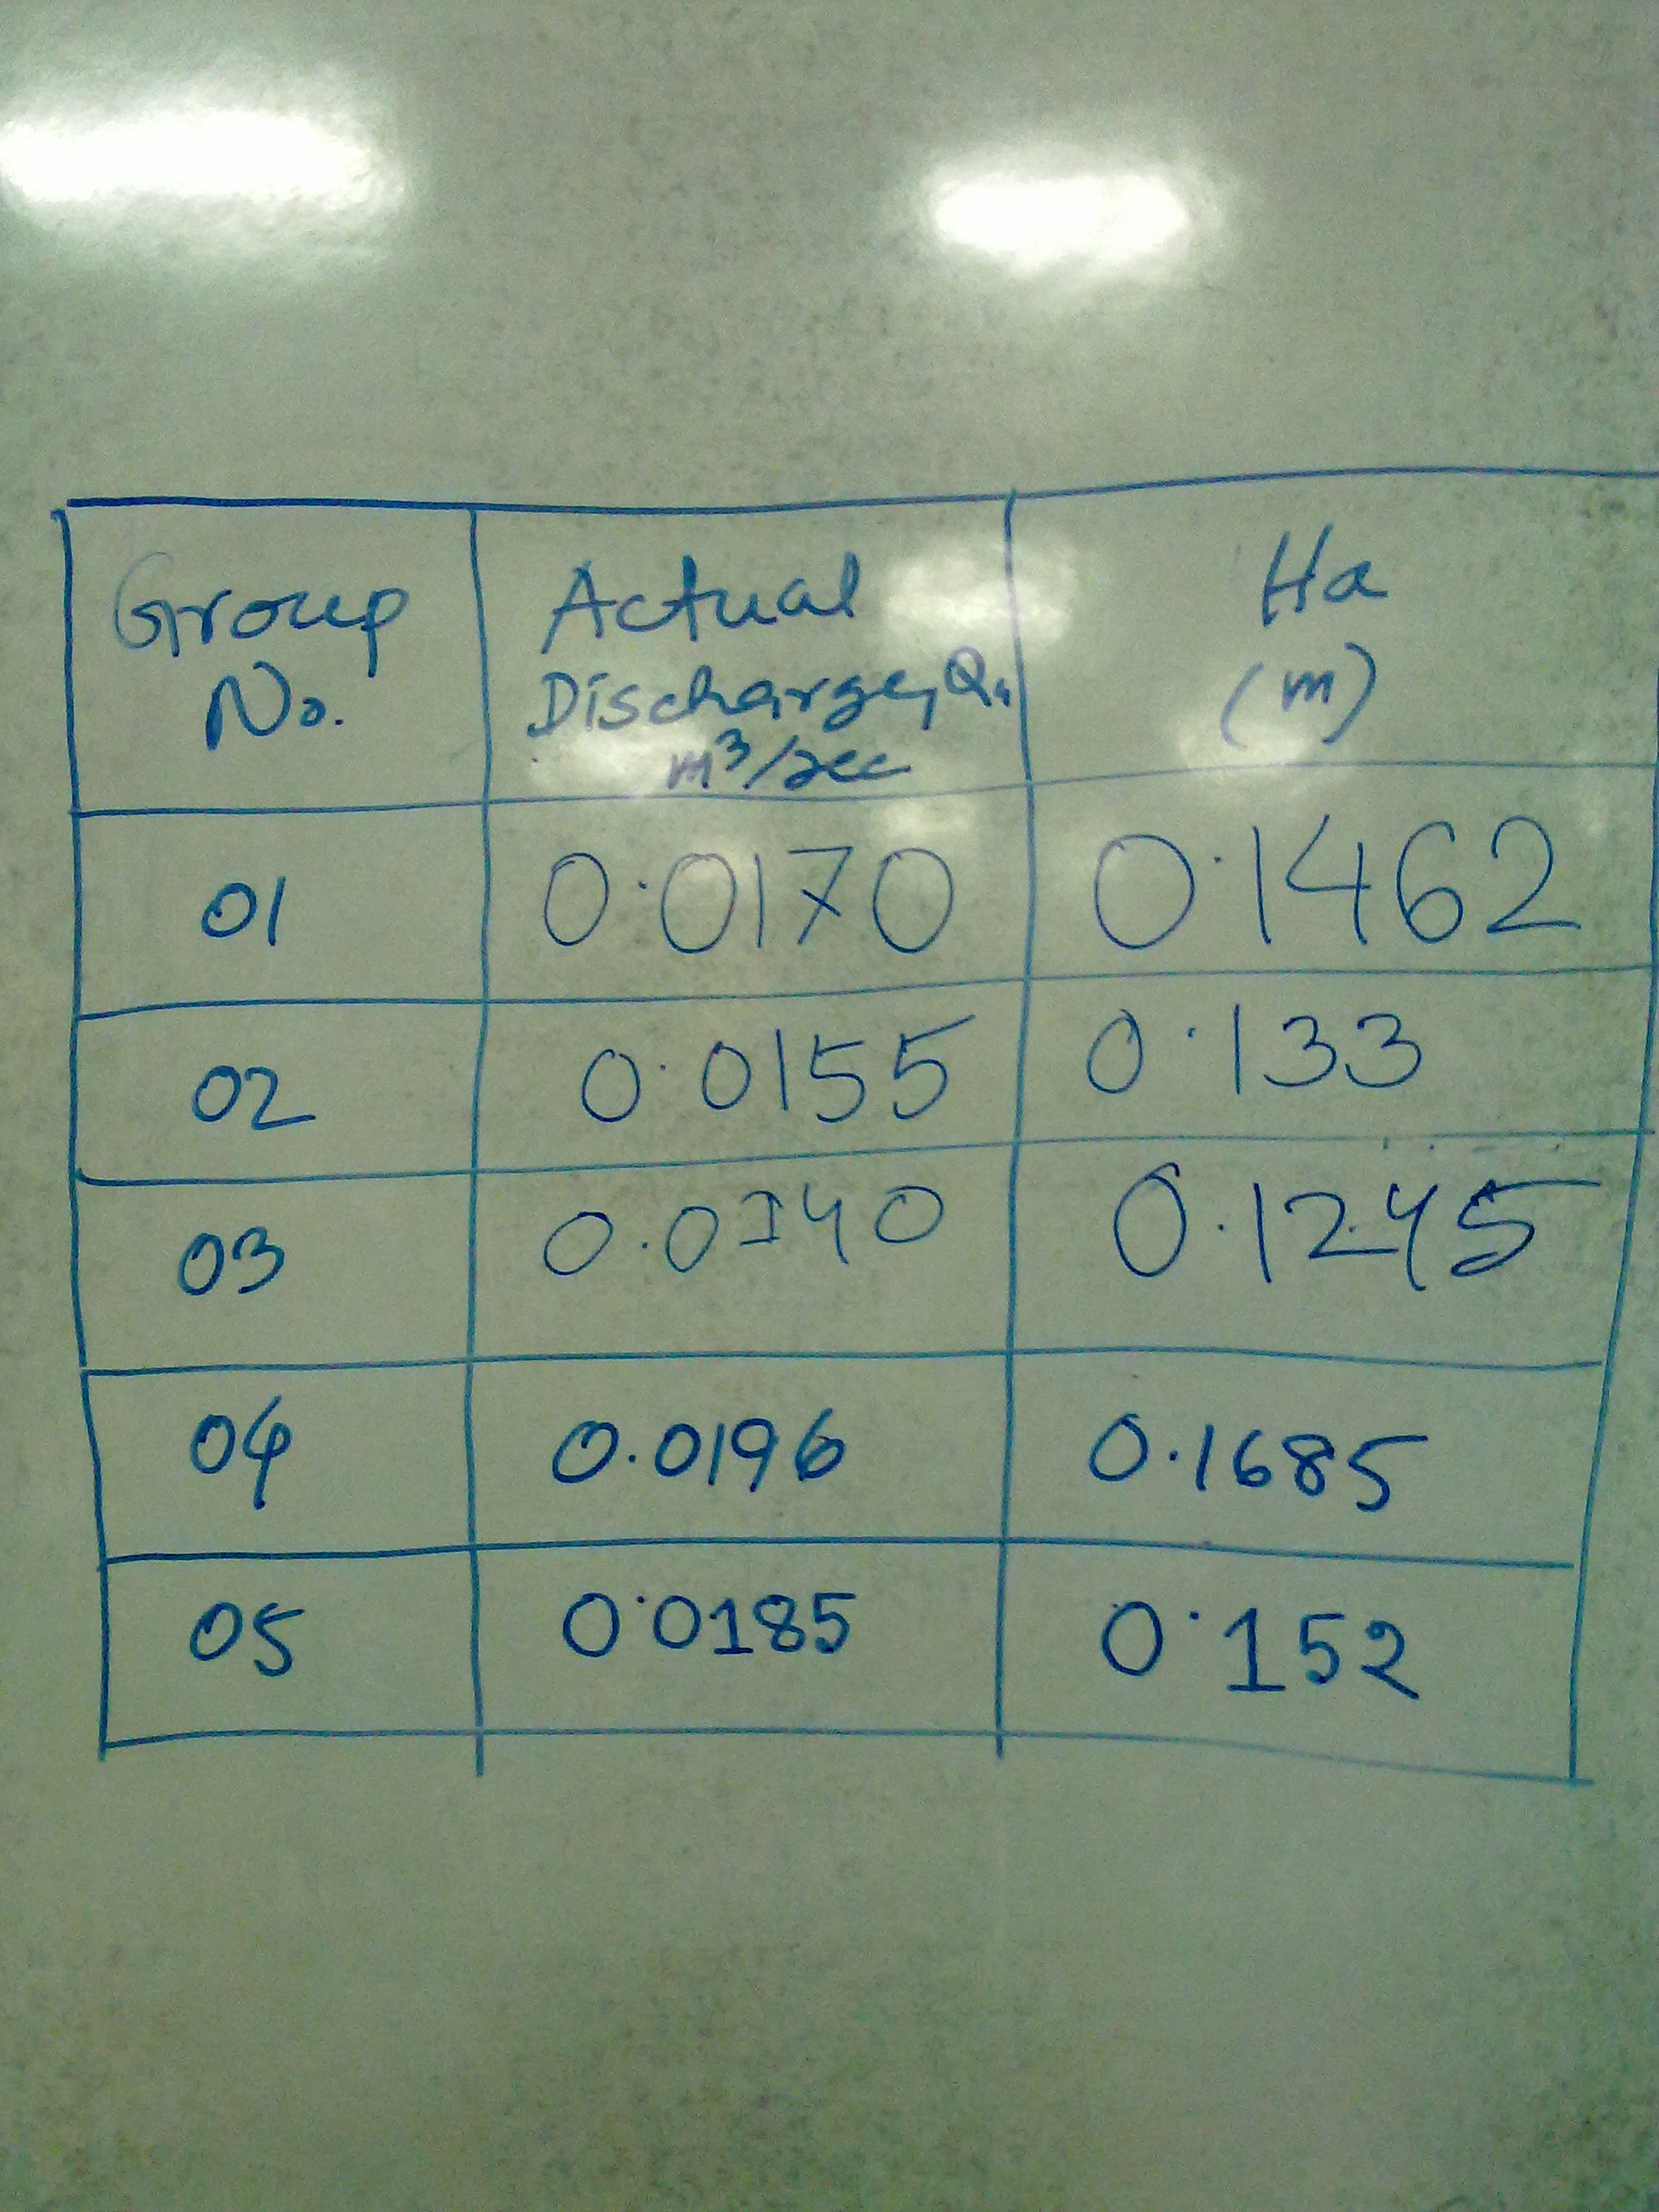 Group No.
Actual Discharge, Qa m³/sec
Ha (m)
01 0.0170 0.1462
02 0.0155 0.133
03 0.0140 0.1245
04 0.0196 0.1685
05 0.0185 0.152